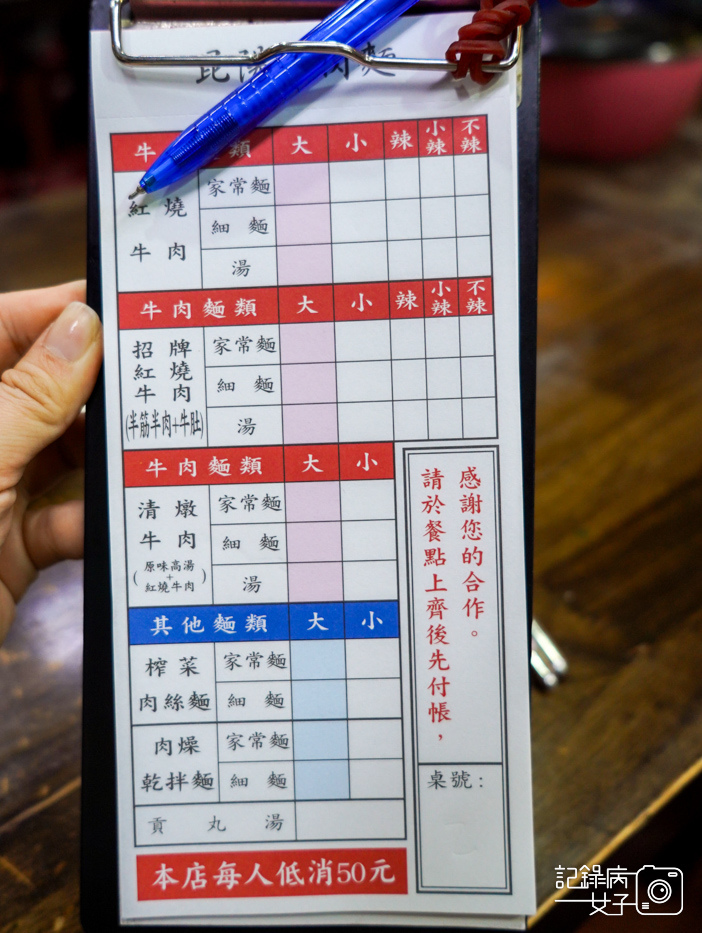 麵
牛 類 大 小 辣 小辣 不辣
紅燒
牛肉
家常麵
細麵
湯
牛肉麵類 大 小 辣 小辣 不辣
招牌
紅燒
牛肉
(半筋半肉+牛肚)
家常麵
細麵
湯
牛肉麵類 大 小
清燉
牛肉
(原味高湯
+
紅燒牛肉)
家常麵
細麵
湯
其他麵類 大 小
榨菜
肉絲麵
家常麵
細麵
肉燥
乾拌麵
家常麵
細麵
貢丸湯
請於餐點上齊後先付帳,
感謝您的合作。
桌號:
本店每人低消50元
記錄病
女子